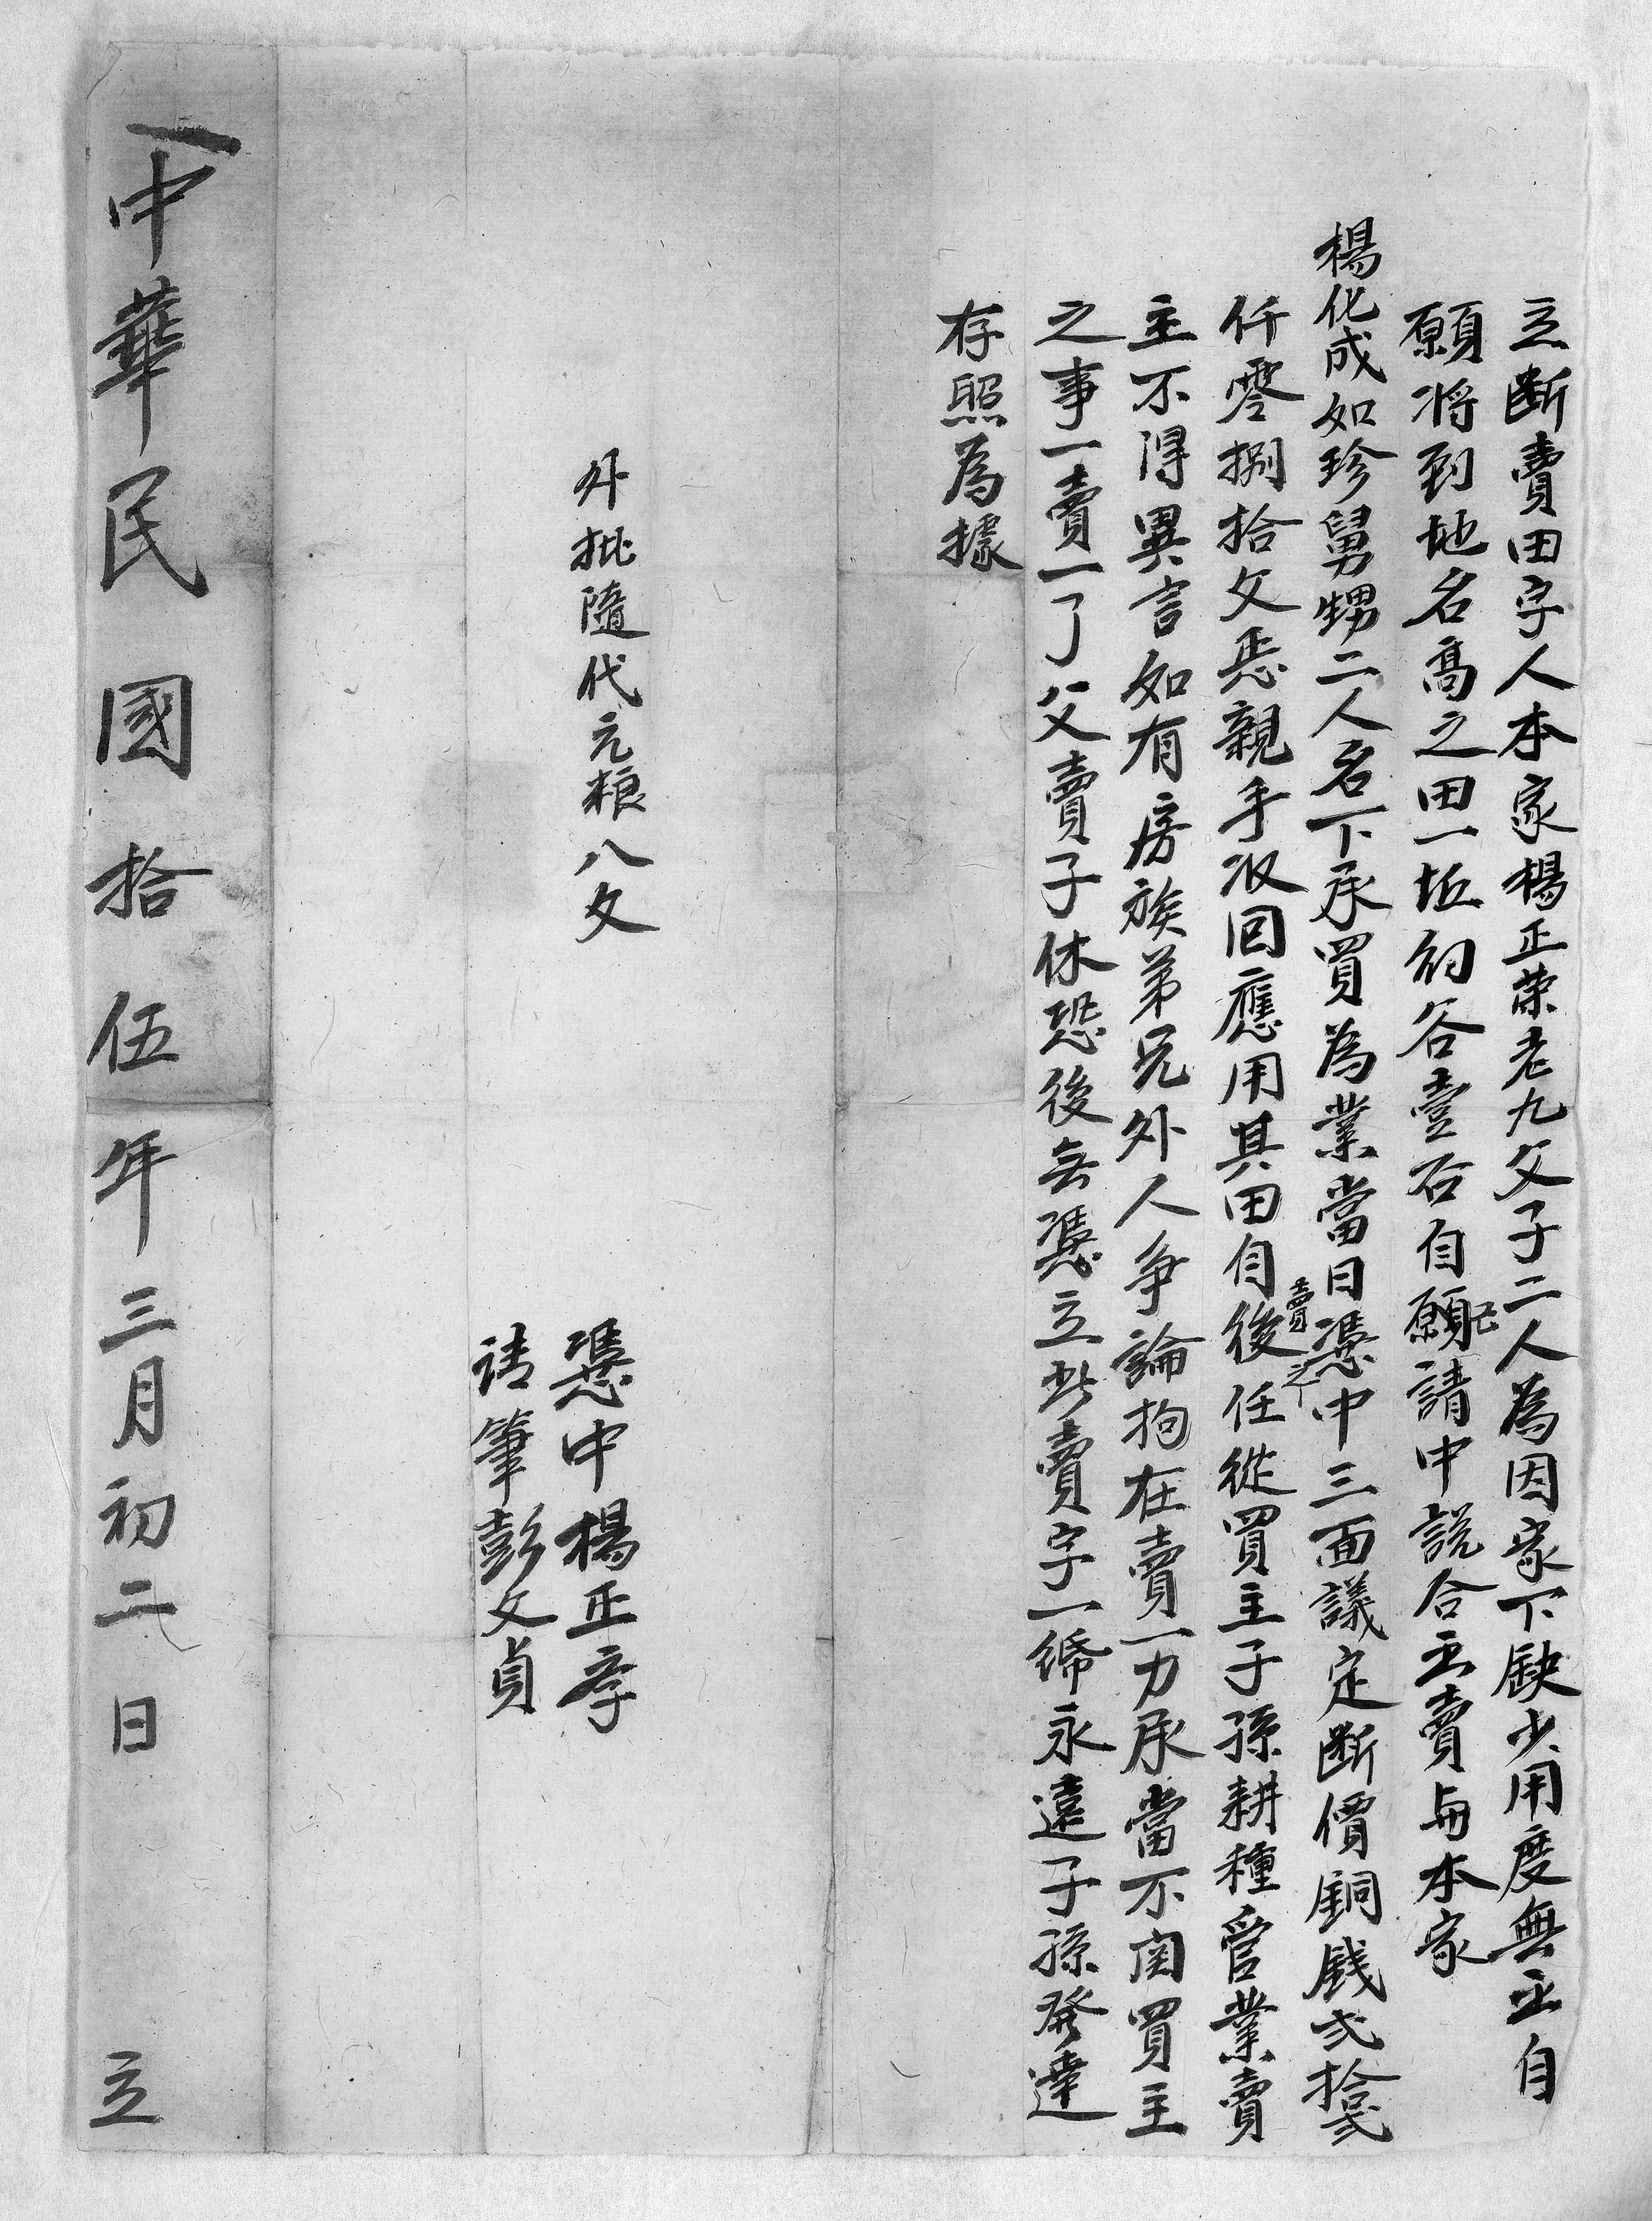 立断賣田字人本家楊正荣老九父子二人為因家下缺少用度無出自
願將到地名高之田一坵約谷壹石自己願請中説合出賣与本家
楊化成如珍舅甥二人名下承買為業當日憑中三面議定断價銅錢弍拾弍
仟零捌拾文恁親手収回應用其田自賣之後任從買主子孫耕種管業賣
主不得異言如有房族弟兄外人争論拘在賣一力承當不関買主
之事一賣一了父賣子休恐後無憑立此賣字一紙永遠子孫發達
存照為據
外批隨代元粮八文
憑中楊正孝
請筆彭文貞
中華民國拾伍年三月初二日 立